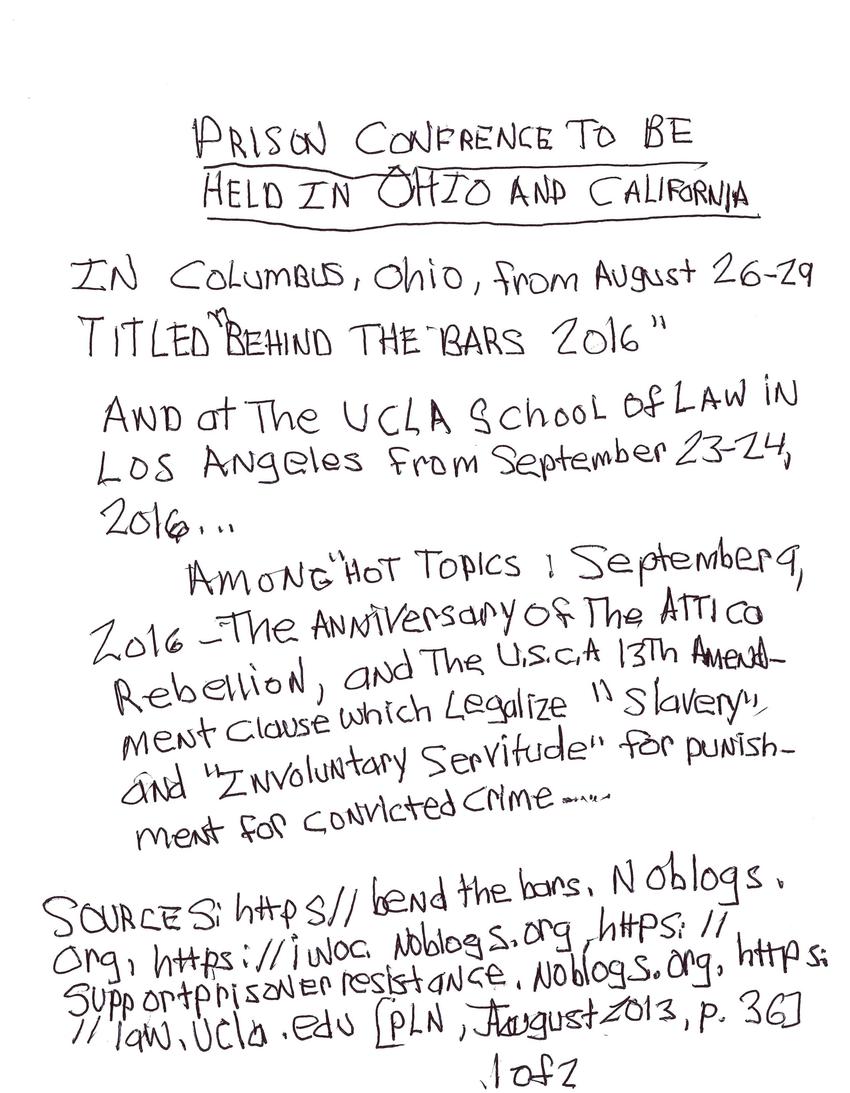 PRISON CONFRENCE TO BE
HELD IN OHIO AND CALIFORNIA
IN COLUMBUS, Ohio, from August 26-29
TITLED "BEHIND THE BARS 2016"
AND at The UCLA School of LAW iN
LOS ANgeles from September 23-24,
2016...
AMONG "HOT TOPICS : September 9,
2016 - The ANNiVersary Of The ATTICa
Rebellion, and The U.S.C.A 13Th Amend-
ment Clause which Legalize "Slavery",
and "INvoluntary Servitude" for punish-
ment for convicted Crime ......
SOURCES: https// bend the bars. Noblogs.
org, https://iwoc. Noblogs.org, https://
Supportprisoner resistance. Noblogs.org, https:
//law.ucla.edu [PLN, August 2013, p. 36]
1 of 2